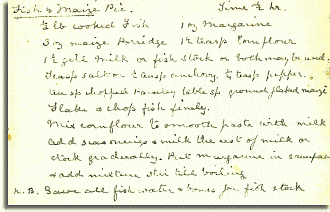 Fish & Maize Pie. Time ½ hr.
½ lb cooked Fish 1 oz Margarine
3 oz maize Porridge 1½ teasp Cornflour
1½ gill milk or fish stock or both may be used.
Teasp salt or ½ teasp anchovy. ½ teasp pepper.
chopped Parsley table sp ground flaked maize
Flake & chop fish finely.
Mix cornflour to smooth paste with milk
add seasonings & milk the rest of milk or
stock gradually. Put margarine in saucepan
& add mixture stir till boiling
N.B. Save all fish water & bones for fish stock